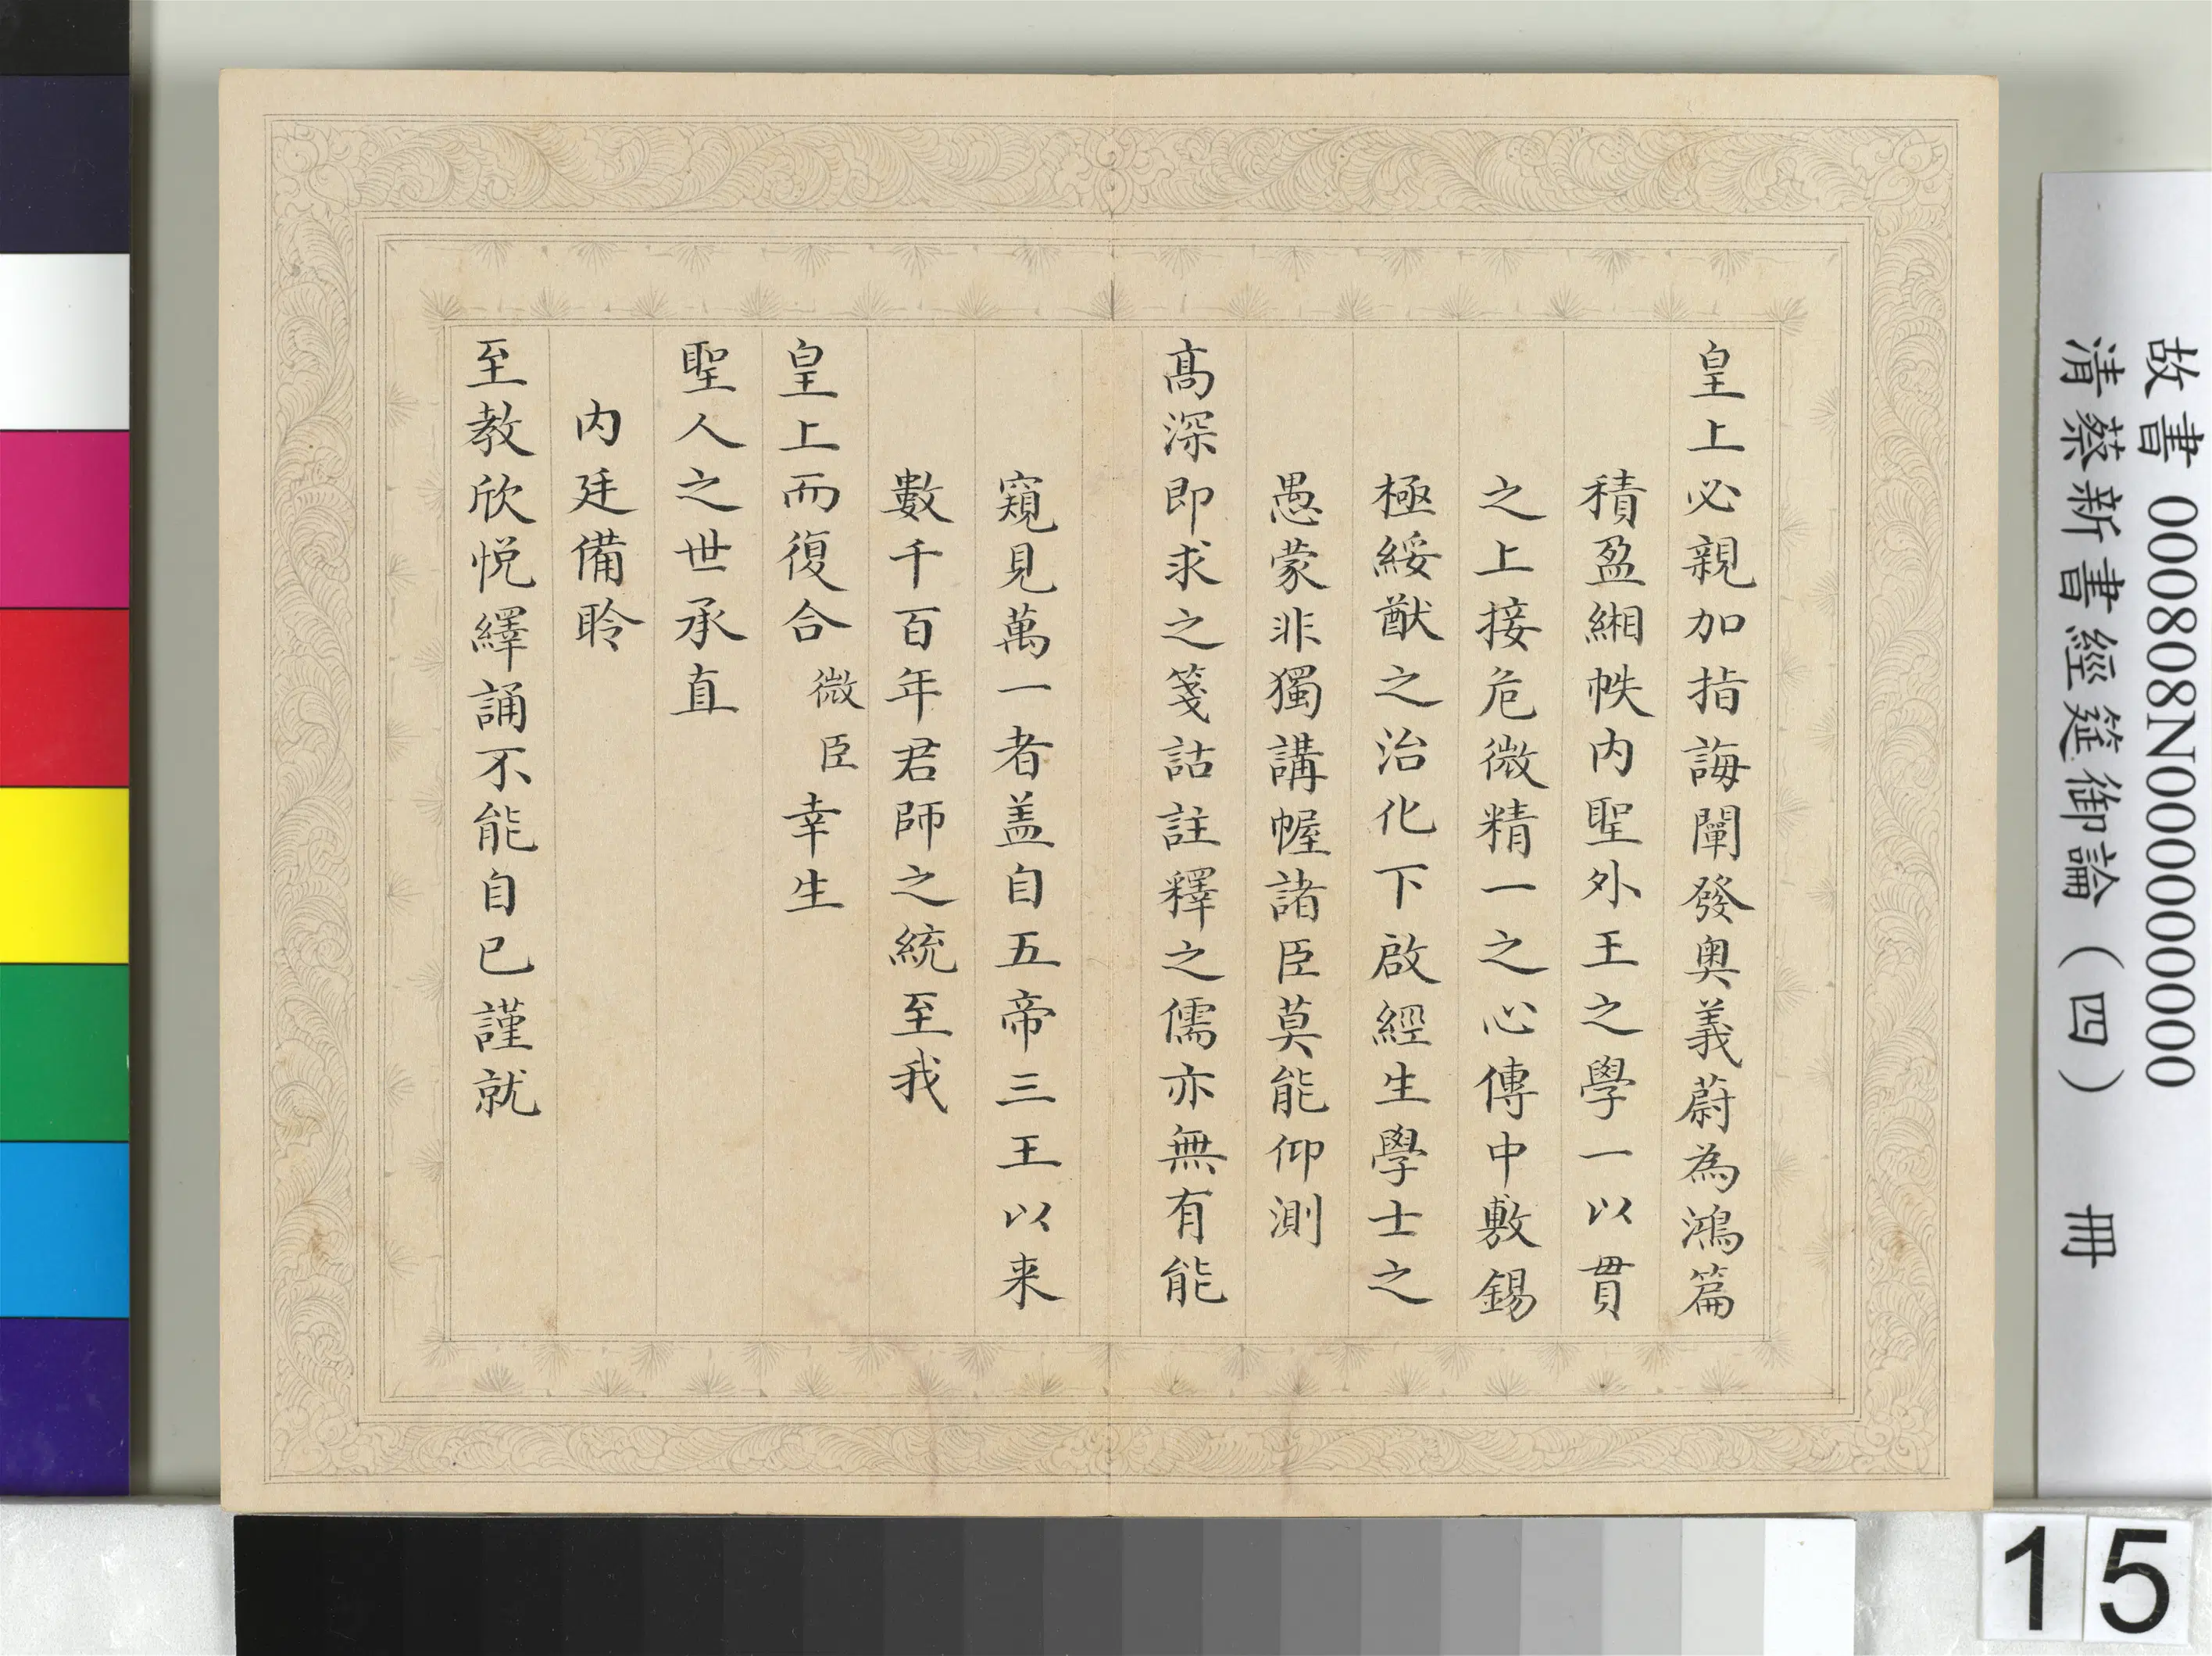 皇上必親加指誨闡發奧義蔚為鴻篇
積盈緗帙內聖外王之學一以貫
之上接危微精一之心傳中敷錫
極綏猷之治化下啟經生學士之
愚蒙非獨講幄諸臣莫能仰測
高深即求之箋詁註釋之儒亦無有能
窺見萬一者盖自五帝三王以来
數千百年君師之統至我
皇上而復合微臣幸生
聖人之世承直
內廷備聆
至教欣悅繹誦不能自已謹就
故書 000808N000000000
清蔡新書經筵御論（四） 冊
15